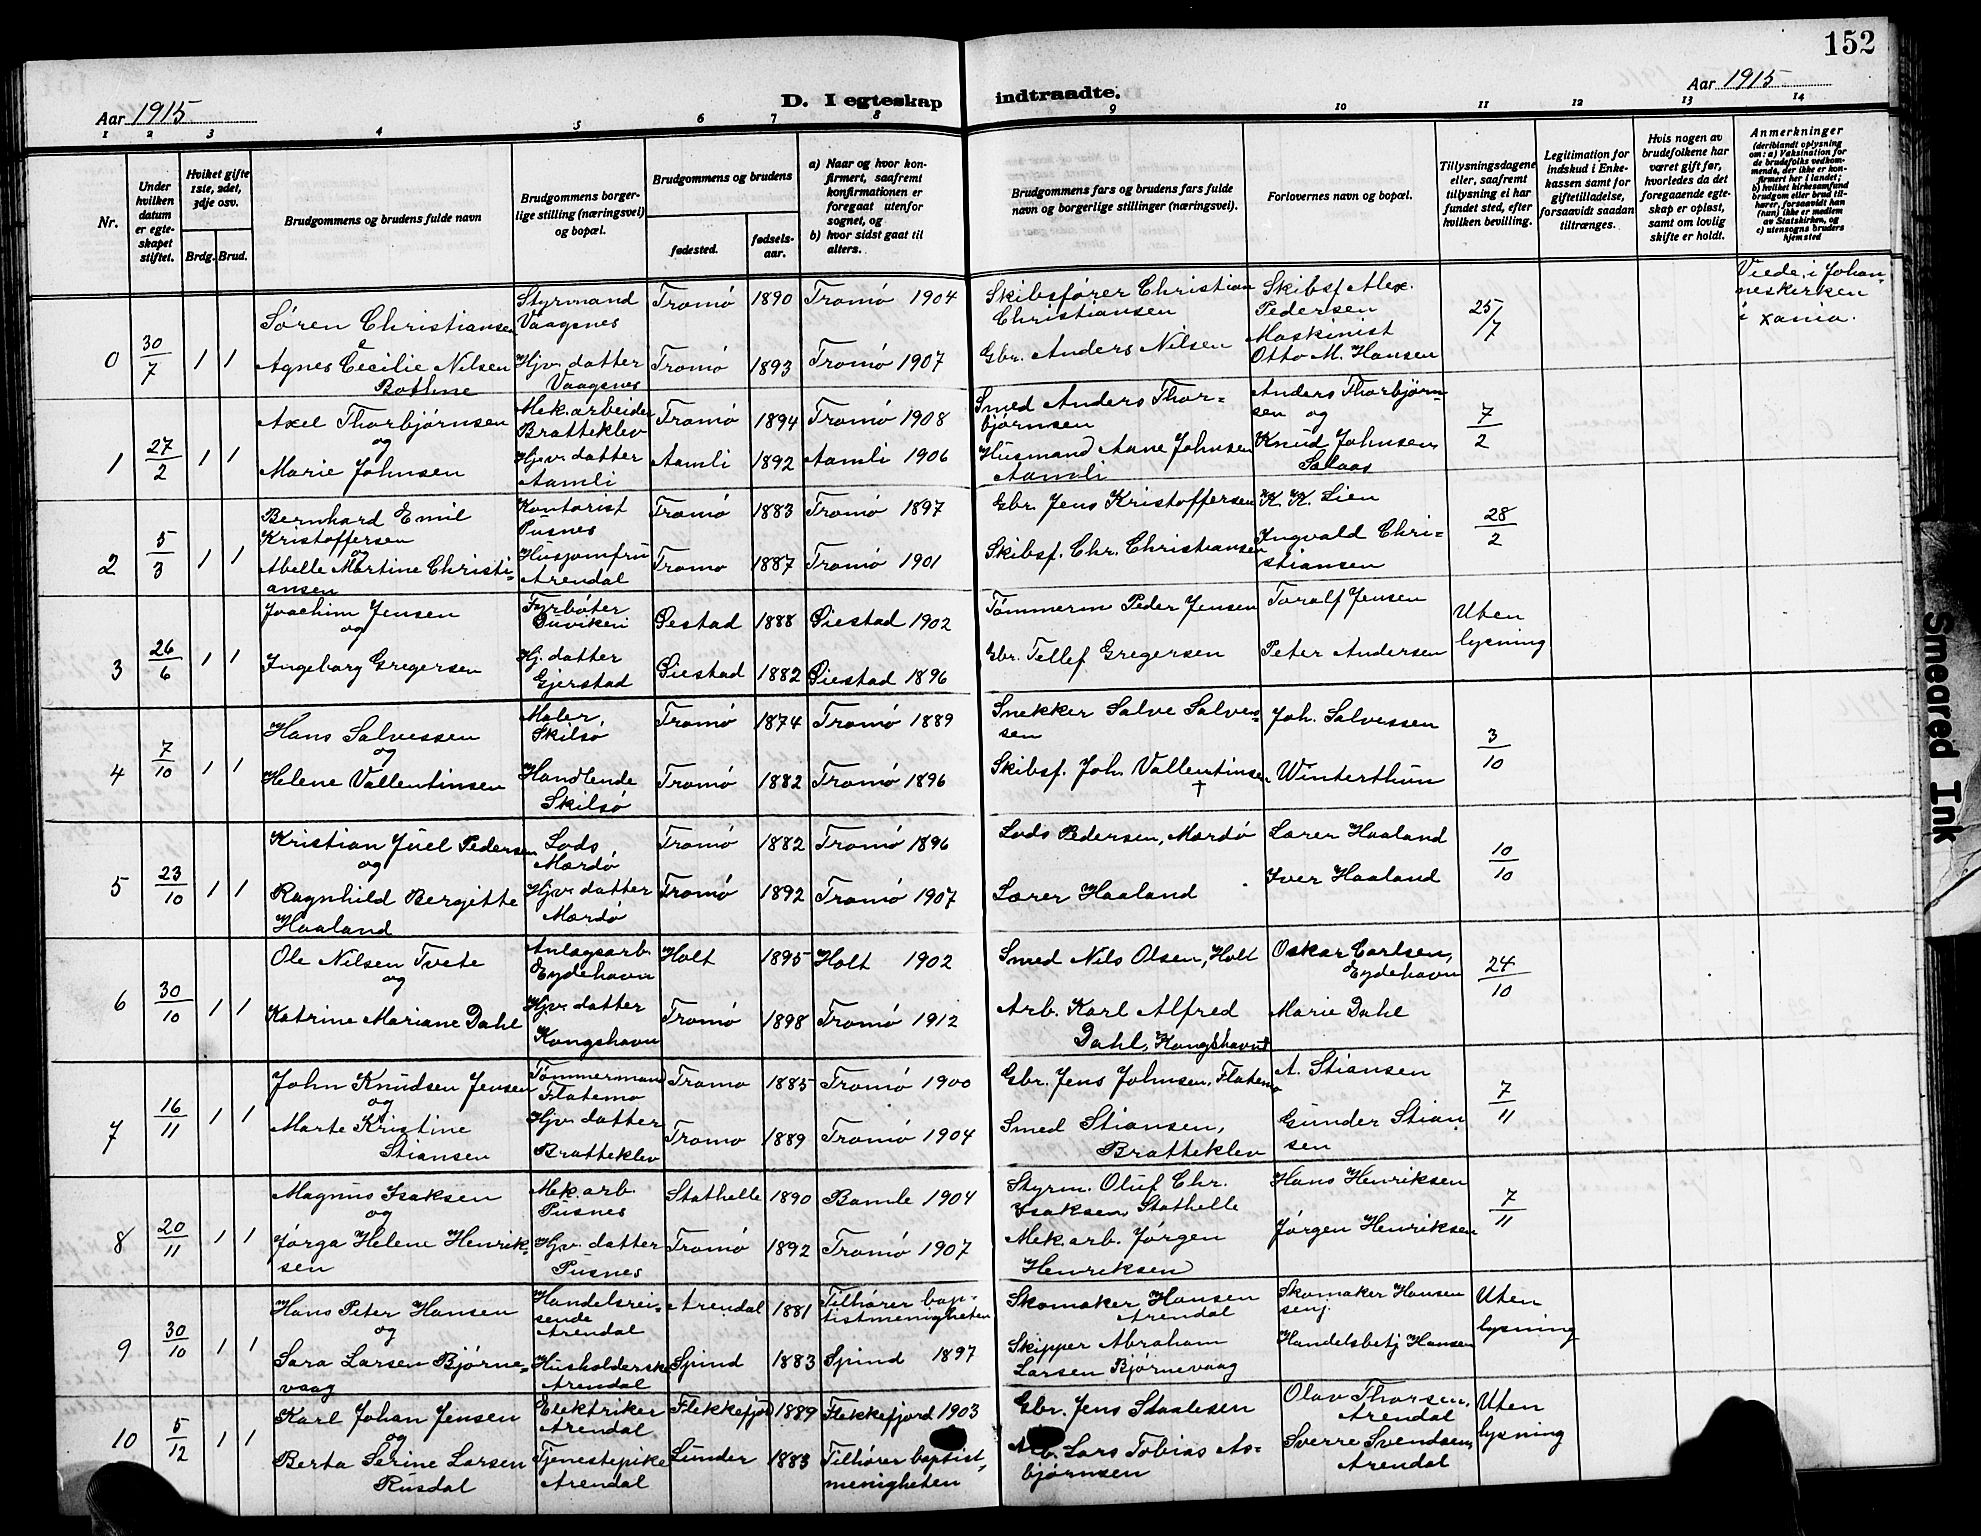 152
Aar 1915
D. I egteskap indtraadte.
Aar 1915
1 2 3 4 5 6 7 8 9 10 11 12 13 14
Nr.
Under hvilken datum er egteskapet stiftet.
Hvilket gifte 1ste, 2det, 3dje osv.
Brdg. Brud.
Brudgommens og brudens fulde navn
Brudgommens borgerlige stilling (næringsvei) og bopæl.
Brudgommens og brudens
fødested.
fødselsaar.
a) Naar og hvor konfirmert, saafremt konfirmationen er foregaat utenfor sognet, og
b) hvor sidst gaat til alters.
Brudgommens fars og brudens fars fulde navn og borgerlige stillinger (næringsvei).
Forlovernes navn og bopæl.
Tillysningsdagene eller, saafremt tillysning ei har fundet sted, efter hvilken bevilling.
Legitimation for indskud i Enkekassen samt for giftetilladelse, forsaavidt saadan tiltrænges.
Hvis nogen av brudefolkene har været gift før, hvorledes da det foregaaende egteskap er opløst, samt om lovlig skifte er holdt.
Anmerkninger (deriblandt oplysning om: a) Vaksination for de brudefolks vedkommende, der ikke er konfirmert her i landet; b) hvilket kirkesamfund brudgom eller brud tilhører, forsaavidt han (hun) ikke er medlem av Statskirken, og c) utensogns bruders hjemsted
0 30/7 1 1 Søren Christiansen Styrmand Vaagsnes Tromø 1890 Tromø 1904 Skibsfører Christian Christiansen Skibsf Alex. Pedersen 25/7 Viede i Johanneskirken i Xania.
& Agnes Cecilie Nilsen Bothne Hjv. datter Vaagsnes Tromø 1893 Tromø 1907 Gbr. Anders Nilsen Maskinist Otto M. Hansen
1 27/2 1 1 Axel Thorbjørnsen Mek. arbeider Bratteklev Tromø 1894 Tromø 1908 Smed Anders Thorbjørnsen Anders Thorbjørnsen og 7/2
og Marie Johnsen Hjv. datter Aamli Aamli 1892 Aamli 1906 Husmand Aane Johnsen Aamli Knud Johnsen
2 5/3 1 1 Bernhard Emil Kristoffersen Kontorist Pusnes Tromø 1883 Tromø 1897 Gbr. Jens Kristoffersen K. K. Lien 28/2
og Abelle Martine Christiansen Husjomfru Arendal Tromø 1887 Tromø 1901 Skibsf. Chr. Christiansen Ingvald Christiansen
3 26/6 1 1 Joachim Jensen Fyrbøter Øiestad 1888 Øiestad 1902 Tømmerm Peder Jensen Toralf Jensen Uten lysning
og Ingeborg Gregersen Hj. datter Gjerstad Øiestad 1882 Øiestad 1896 Gbr. Tellef Gregersen Peter Andersen
4 7/10 1 1 Hans Salvessen Maler, Skilsø Tromø 1874 Tromø 1889 Snekker Salve Salvessen Joh. Salvessen 3/10
og Helene Vallentinsen Handlende Skilsø Tromø 1882 Tromø 1896 Skibsf. Joh. Vallentinsen † Winterthun
5 23/10 1 1 Kristian Juel Pedersen Lods Mærdø Tromø 1882 Tromø 1896 Lods Pedersen, Mærdø Lærer Haaland 10/10
og Ragnhild Bergitte Haaland Hjv. datter Mærdø Tromø 1892 Tromø 1907 Lærer Haaland Iver Haaland
6 30/10 1 1 Ole Nilsen Tvete Anlægsarb. Eydehavn Holt 1895 Holt 1902 Smed Nils Olsen, Holt Oskar Carlsen, Eydehavn 24/10
og Katrine Mariane Dahl Hjv. datter Kongshavn Tromø 1898 Tromø 1912 Arb. Karl Alfred Dahl, Kongshavn Marie Dahl
7 16/11 1 1 John Knudsen Jensen Tømmermand Flatemo Tromø 1885 Tromø 1900 Gbr. Jens Johnsen, Flatemo A. Stiansen 7/11
og Marte Kristine Stiansen Hjv. datter Bratteklev Tromø 1889 Tromø 1904 Smed Stiansen, Bratteklev Gunder Stiansen
8 20/11 1 1 Magnus Isaksen Mek. arb. Pusnes Stathelle 1890 Bamle 1904 Styrm. Oluf Chr. Isaksen Stathelle Hans Henriksen 7/11
og Jørga Helene Henriksen Hjv. datter Pusnes Tromø 1892 Tromø 1907 Mek. arb. Jørgen Henriksen Jørgen Henriksen
9 30/10 1 1 Hans Peter Hansen Handelsreisende Arendal Arendal 1881 Tilhører baptistmenigheten Skomaker Hansen Arendal Skomaker Hansen senj. Uten lysning
og Sara Larsen Bjørnevaag Husholderske Arendal Spind 1883 Spind 1897 Skipper Abraham Larsen Bjørnevaag Handelsbetj Hansen
10 5/12 1 1 Karl Johan Jensen Elektriker Arendal Flekkefjord 1889 Flekkefjord 1903 Gbr. Jens Staalesen Olav Thorsen, Arendal Uten lysning
og Berta Serine Larsen Rusdal Tjenestepike Arendal Lunder 1883 Tilhører baptistmenigheten Arb. Lars Tobias Asbjørnsen Sverre Svendsen, Arendal
Smeared Ink